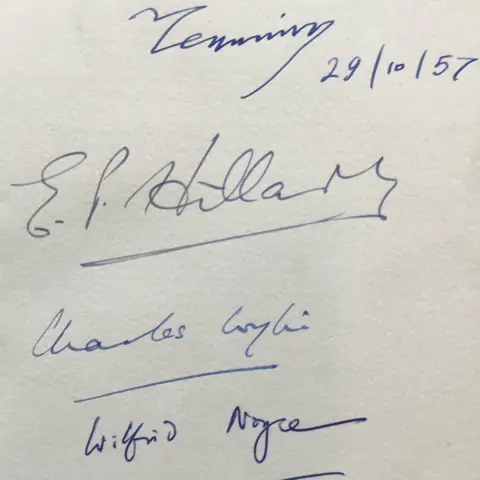 Tenzing
29/10/57
E. P. Hillary
Charles Wylie
Wilfrid Noyce